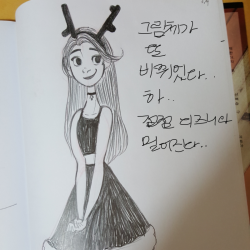 그림체가
또
바뀌었다..
하..
점점 디즈니와
멀어진다..